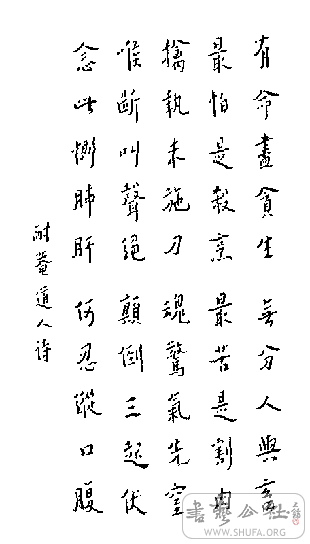 有命盡貪生 無分人與畜
最怕是殺烹 最苦是割肉
擒執未施刀 魂驚氣先窒
喉斷叫聲絕 顛倒三起伏
念此惻肺肝 何忍縱口腹
耐菴道人詩
書藝公社
WWW.SHUFA.ORG